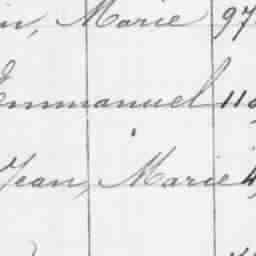 Marie 97
Emmanuel 11
Jean, Marie 4